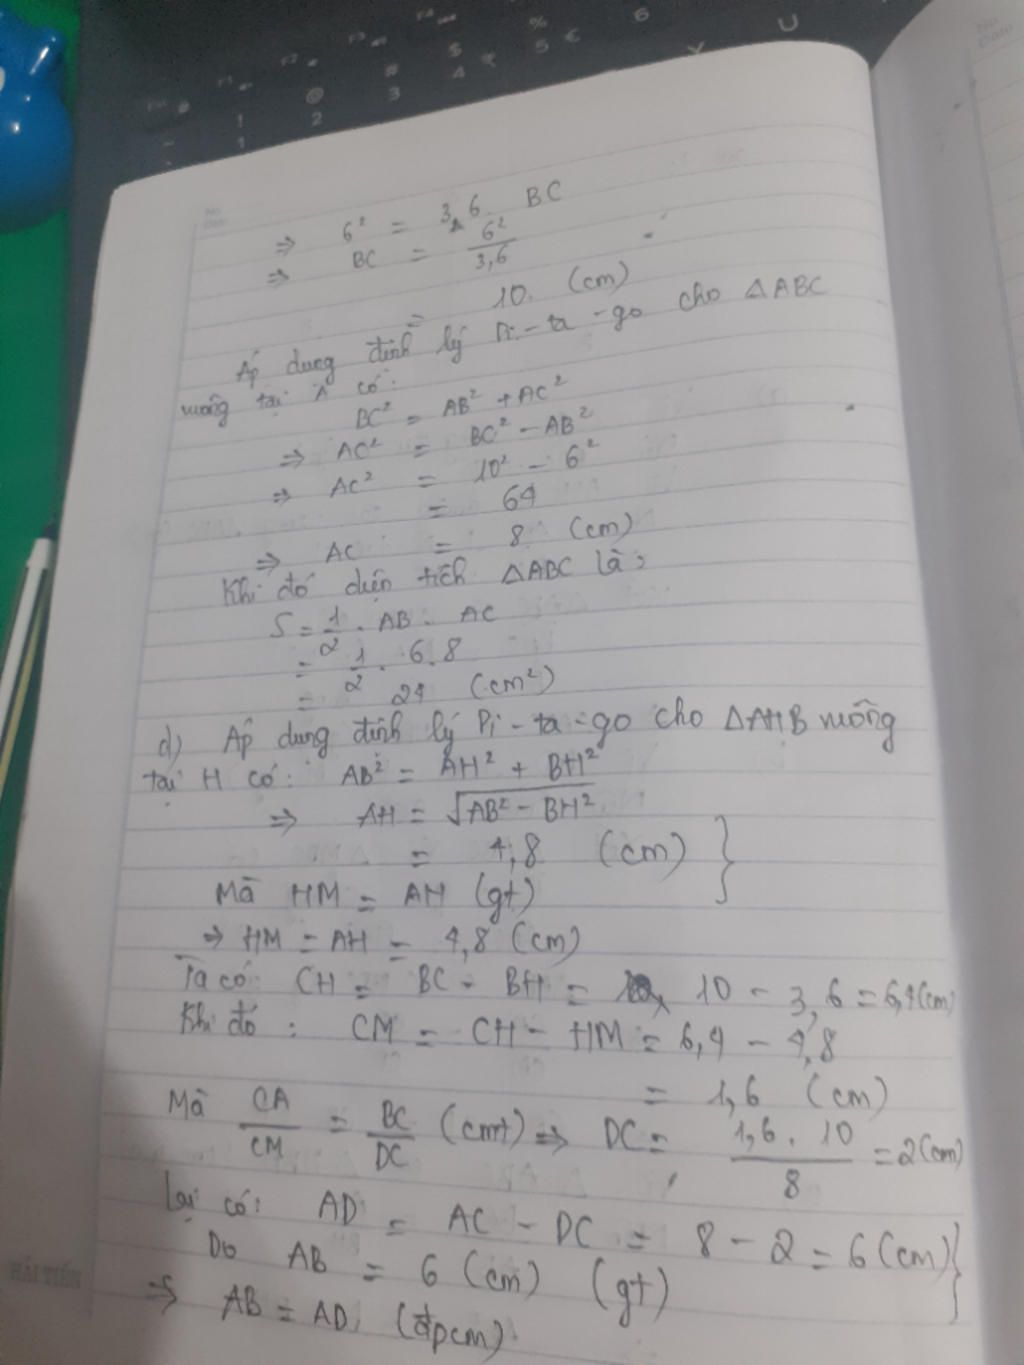 ⇒ 6² = 3,6 . BC
⇒ BC = 6²/3,6
= 10 (cm)
Áp dụng định lý Pi-ta-go cho ΔABC
vuông tại A có:
BC² = AB² + AC²
⇒ AC² = BC² - AB²
⇒ AC² = 10² - 6²
= 64
⇒ AC = 8 (cm)
Khi đó diện tích ΔABC là:
S = 1/2 . AB . AC
= 1/2 . 6.8
= 24 (cm²)
d) Áp dụng định lý Pi-ta-go cho ΔAHB vuông
tại H có: AB² = AH² + BH²
⇒ AH = √AB² - BH²
= 4,8 (cm) }
Mà HM = AH (gt)
⇒ HM = AH = 4,8 (cm)
Ta có CH = BC - BH = 10 - 3,6 = 6,4(cm)
Khi đó: CM = CH - HM = 6,4 - 4,8
= 1,6 (cm)
Mà CA/CM = BC/DC (cmt) ⇒ DC = 1,6 . 10/8 = 2(cm)
Lại có: AD = AC - DC = 8 - 2 = 6(cm) }
Do AB = 6 (cm) (gt)
⇒ AB = AD (đpcm)
HẢI TIẾN